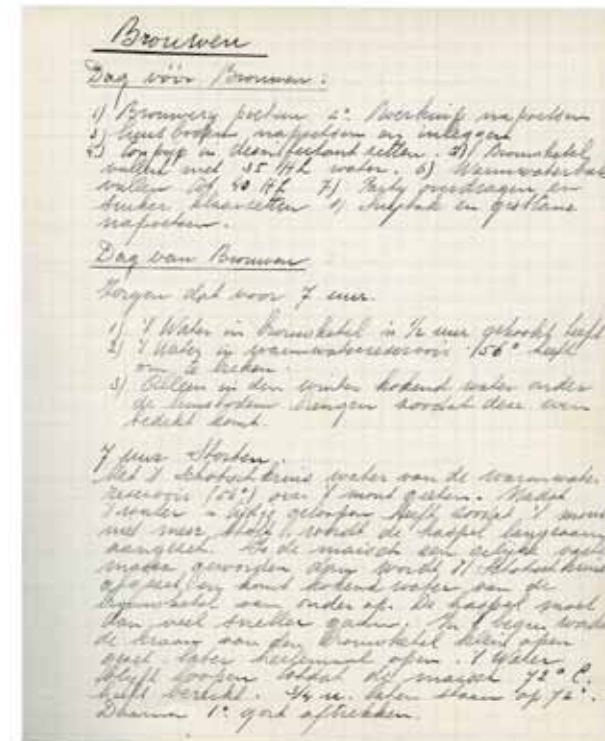 Brouwen
Dag vóór Brouwen:
1) Brouwery poetsen 2° Bwerkuip napoetsen
3) leggen napoetsen en inleggen
4) in desinfectant zetten. 5) Brouwketel
vullen met 35 Hl water. 6) Warmwaterbak
vullen tot 40 Hl 7) overdragen en
suiker klaarzetten en gistkuip
napoetsen.
Dag van Brouwen
Zorgen dat voor 7 uur.
1) 't Water in brouwketel in ½ uur gekookt heeft
2) 't Water in warmwaterreservoir (56° heeft
om te
3) Alleen in den winter kokend water onder
de brengen zoodat deze even
bedekt komt.
7 uur Storten.
Met 't Schotsch kruis water van de warmwater
reservoir (56°) over 't mout gieten. Nadat
't water geloopen heeft zoodat 't mout
niet meer stoft, wordt de haspel langzaam
aangezet. Als de maisch een vaste
massa geworden is wordt 't Schotsch kruis
afgezet en komt kokend water van de
brouwketel van onder op. De haspel moet
dan veel sneller gaan. In 't begin wordt
de kraan van den Brouwketel klein open
gezet later heelemaal open. 't Water
blijft loopen totdat de maisch 72° C.
heeft bereikt. ¾ u. laten staan op 72°.
Daarna 1° aftrekken.